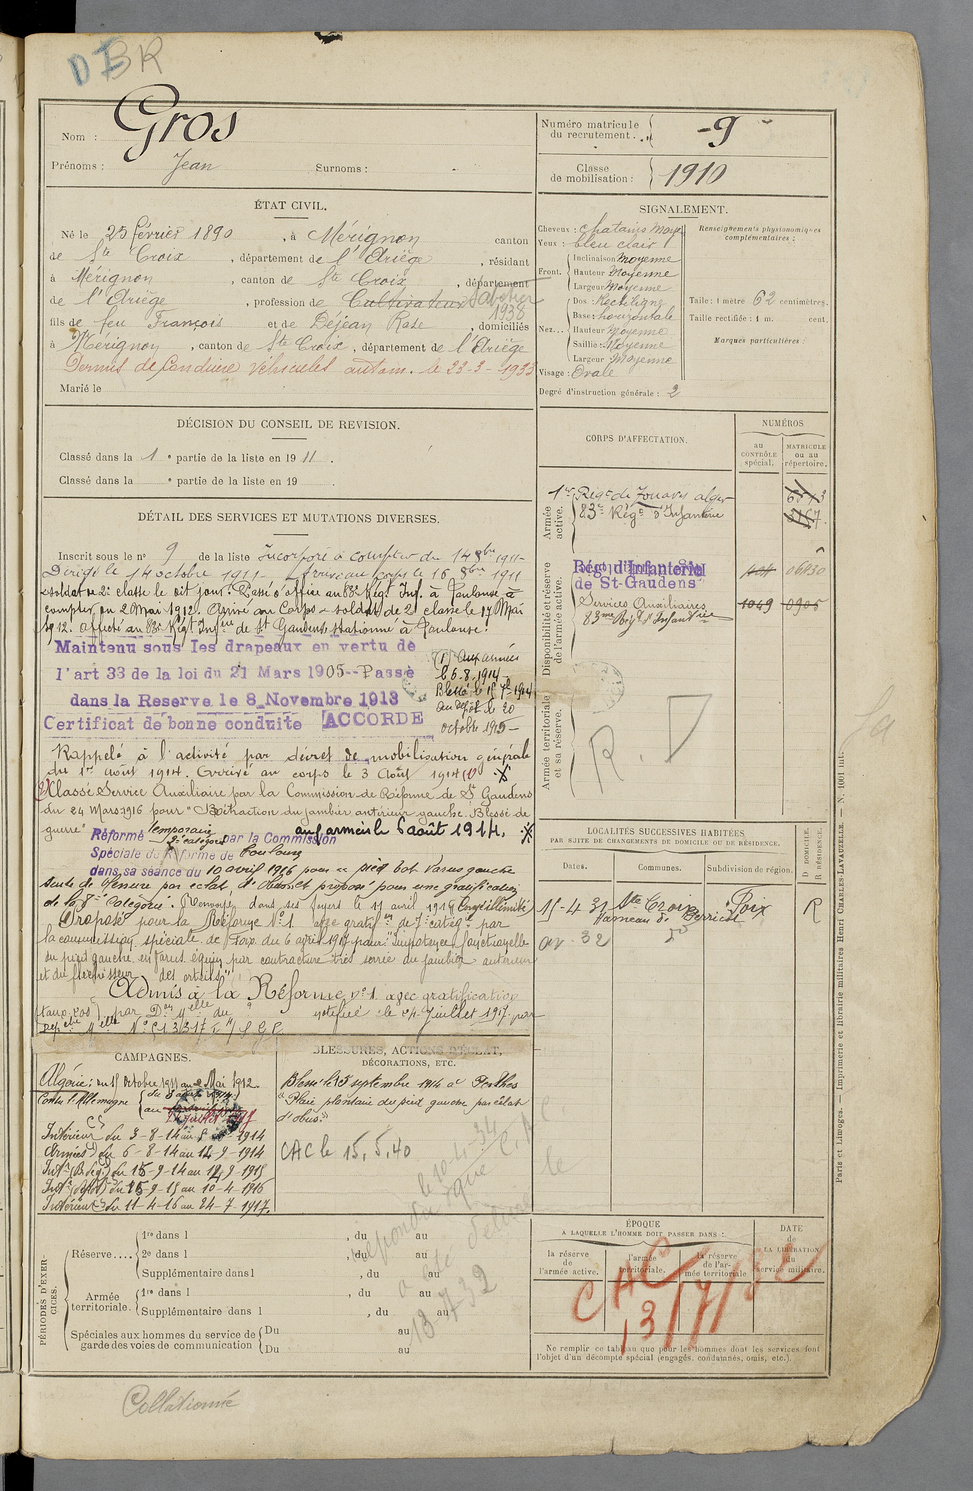 DBR
Nom : Gros
Prénoms : Jean Surnoms :
Numéro matricule du recrutement : 9
Classe de mobilisation : 1910
ÉTAT CIVIL.
Né le 25 février 1890, à Mérignon canton
de Ste Croix, département de l'Ariège, résidant
à Mérignon canton de Ste Croix, département
de l'Ariège, profession de Cultivateur Sabotier 1938
fils de feu François et de Déjean Rose, domiciliés
à Mérignon, canton de Ste Croix, département de l'Ariège
Permis de Conduire véhicules autom. le 23-3-1933
Marié le
SIGNALEMENT.
Cheveux : chatains moy
Yeux : bleu clair
Front. Inclinaison Moyenne
Hauteur Moyenne
Largeur Moyenne
Nez... Dos : Rectiligne
Base : horizontale
Hauteur Moyenne
Saillie : Moyenne
Largeur Moyenne
Visage : Ovale
Renseignements physionomiques complémentaires :
Taille : 1 mètre 62 centimètres.
Taille rectifiée : 1 m. cent.
Marques particulières :
Degré d'instruction générale : 2
DÉCISION DU CONSEIL DE REVISION.
Classé dans la 1e partie de la liste en 1911.
Classé dans la e partie de la liste en 19 .
DÉTAIL DES SERVICES ET MUTATIONS DIVERSES.
Inscrit sous le no 9 de la liste Incorporé à compter du 14 8bre 1911-
Dirigé le 14 octobre 1911- Arrivé au corps le 16 8bre 1911
soldat de 2e classe le dit jour. Passé d'office au 83e Rég. Inf. à Toulouse à
compter du 2 Mai 1912. Arrivé au Corps soldat de 2e classe le 17 Mai
1912. affecté au 83e Régt Infrie de St Gaudens stationné à Toulouse.
Maintenu sous les drapeaux en vertu de
l'art 33 de la loi du 21 Mars 1905--Passé
dans la Reserve le 8 Novembre 1913
Certificat de bonne conduite ACCORDE
(1) Aux armées
le 6.8.1914
Blessé le 15 7bre 1914
au dépôt le 20
octobre 1915-
Rappelé à l'activité par décret de mobilisation générale
du 1er août 1914. Arrivé au corps le 3 Août 1914 (1)
Classé Service Auxiliaire par la Commission de Réforme de St Gaudens
du 24 Mars 1916 pour "Rétraction du jambier antérieur gauche. Blessé de
guerre" aux armées le 6 août 1914.
Réformé temporaire 2e catégorie par la Commission
Spéciale de Réforme de Toulouse
dans sa séance du 10 avril 1916 pour pied bot varus gauche
suite de blessure par éclat d'obus et proposé pour une gratification
de la 8e catégorie. Renvoyé dans ses foyers le 11 avril 1916
Proposé pour la Réforme No 1 avec gratifon de 7e catégie par
la commission spéciale de Foix du 6 avril 1917 pour : Impotence fonctionnelle
du pied gauche en varus équin par contracture très serrée du jambier antérieur
et du fléchisseur des orteils"
Admis à la Réforme no 1 avec gratification
notifiée le 24 Juillet 1917 par
CORPS D'AFFECTATION.
NUMÉROS
au CONTRÔLE spécial.
MATRICULE ou au répertoire.
Armée active.
1er Régt de Zouaves alger
83e Régt d'Infanterie
Disponibilité et réserve de l'armée active.
Régt d'Infanterie
de St-Gaudens
Services Auxiliaires 1049 0905
83me Régt d'Infanterie
Armée territoriale et sa réserve.
R.
LOCALITÉS SUCCESSIVES HABITÉES
PAR SUITE DE CHANGEMENTS DE DOMICILE OU DE RÉSIDENCE.
Dates. Communes. Subdivision de région.
D DOMICILE. R RÉSIDENCE.
15-4-31 Ste Croix Foix R
hameau de
av. 32
CAMPAGNES.
Algérie : du 15 Octobre 1911 au 2 Mai 1912.
Contre l'Allemagne du 3 août 1914
Intérieur du 3-8-14 au 5-8-1914
Armées du 6-8-14 au 14-9-1914
Intérieur du 11-4-16 au 24-7-1917.
BLESSURES, ACTIONS D'ÉCLAT, DÉCORATIONS, ETC.
Blessé le 15 septembre 1914 à Perthes
"Plaie plantaire du pied gauche par éclat
d'obus."
CAC le 15.5.40
a été
13-732
PÉRIODES D'EXERCICES.
Réserve.... 1re dans l , du au
2e dans l , du au
Supplémentaire dans l , du au
Armée territoriale. 1re dans l , du au
Supplémentaire dans l , du au
Spéciales aux hommes du service de garde des voies de communication Du au
Du au
ÉPOQUE
A LAQUELLE L'HOMME DOIT PASSER DANS :
la réserve de l'armée active.
l'armée territoriale.
la réserve de l'armée territoriale
DATE de LA LIBÉRATION du service militaire.
CAC
13/7/32
Ne remplir ce tableau que pour les hommes dont les services font l'objet d'un décompte spécial (engagés, condamnés, omis, etc.).
Collationné
Paris et Limoges. — Imprimerie et librairie militaires Henri CHARLES-LAVAUZELLE. — N. 1001 int.